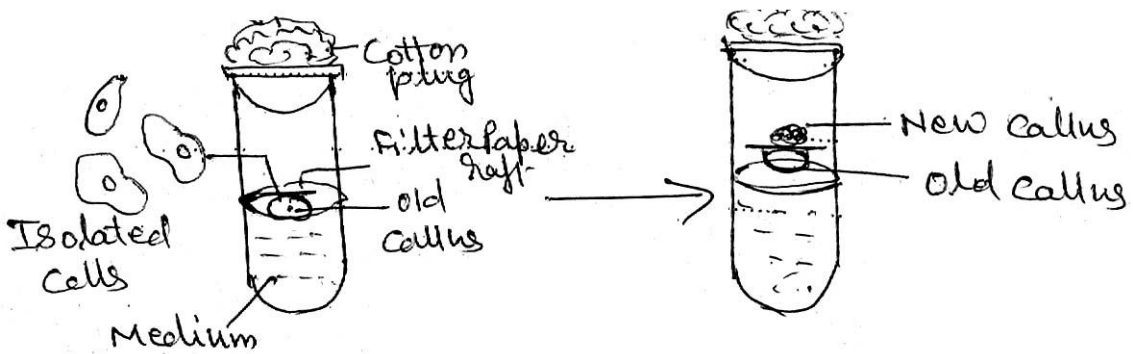 Cotton
plug
Filter Paper
raft
old
callus
Isolated
Cells
Medium
New callus
Old callus